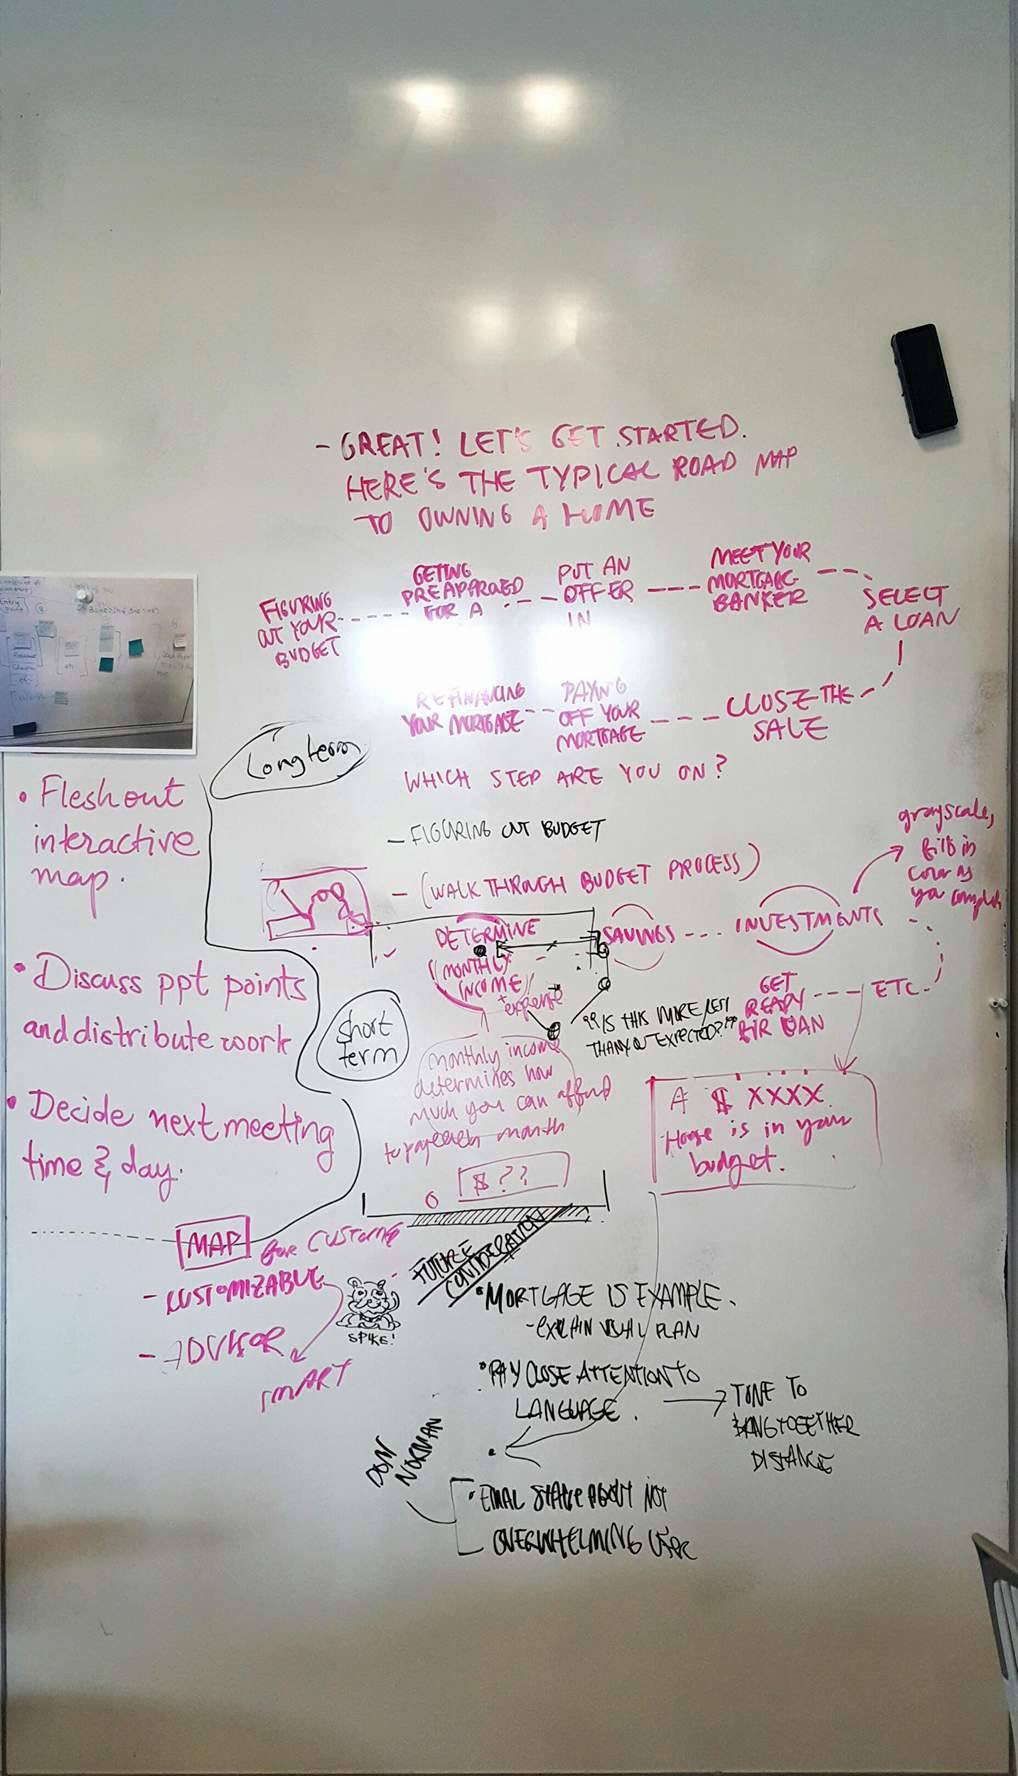 - GREAT! LET'S GET STARTED.
HERE'S THE TYPICAL ROAD MAP
TO OWNING A HOME
FIGURING
OUT YOUR
BUDGET
GETING
PREAPPROVED
FOR A
PUT AN
OFFER
IN
MEET YOUR
MORTGAGE
BANKER
SELECT
A LOAN
CLOSE THE
SALE
PAYING
OFF YOUR
MORTGAGE
REFINANCING
YOUR MORTGAGE
WHICH STEP ARE YOU ON?
- FIGURING OUT BUDGET
- (WALK THROUGH BUDGET PROCESS)
DETERMINE
MONTHLY
INCOME
+ expense
SAVINGS
INVESTMENTS
grayscale,
fills in
color as
you complete
GET
READY
FOR LOAN
ETC.
"IS THIS MORE/LESS
THAN YOU EXPECTED?"
monthly income
determines how
much you can afford
to pay each month
$ ??
A $ XXXX
House is in your
budget.
Long term
Short
term
• Flesh out
interactive
map.
• Discuss ppt points
and distribute work
• Decide next meeting
time & day.
MAP for CUSTOMER
- CUSTOMIZABLE
- ADVISOR
SMART
SPIKE!
FUTURE
CONSIDERATION
• MORTGAGE IS EXAMPLE.
- EXPLAIN PLAN
• PAY CLOSE ATTENTION TO
LANGUAGE.
TONE TO
BRING TOGETHER
DISTANCE
DON
NORMAN
• STATE ABOUT NOT
OVERWHELMING USER